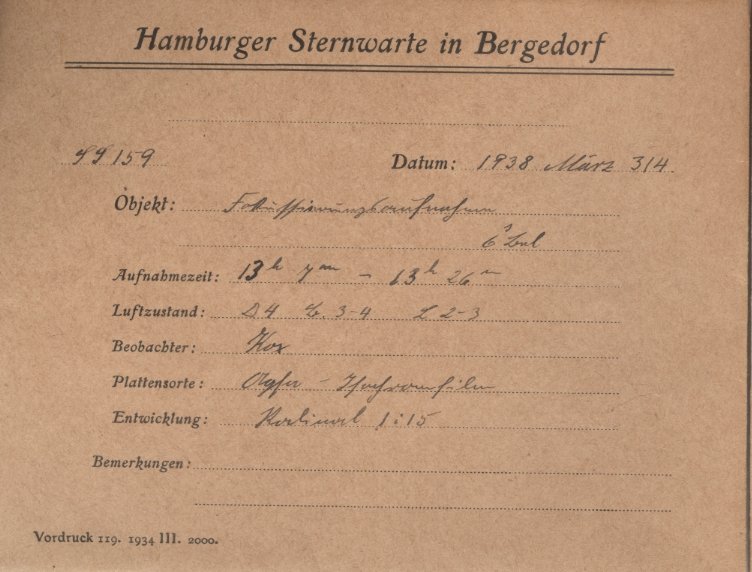 Hamburger Sternwarte in Bergedorf
159 Datum: 1938 März 3/4
Objekt: Fokussierungsaufnahmen
Aufnahmezeit: 13h 7m – 13h 26m
Luftzustand: 3-4 L 2-3
Beobachter:
Plattensorte: Agfa – Isochromfilm
Entwicklung: Rodinal 1:15
Bemerkungen:
Vordruck 119. 1934 III. 2000.